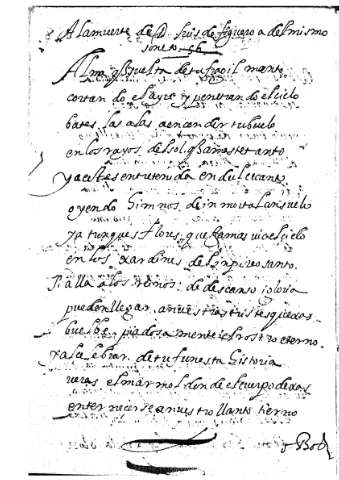 A la muerte de D. luis de figueroa del mismo
sineto 56
Alma q suelta de tu fragil manto
cortando el ayre y penetrando el cielo
bates las alas a encender tu buelo
en los rayos del sol q amaste tanto
ya estes entretenida en dulce canto
oyendo himnos de inmortal consuelo
ya tu ques flores que jamas vio el cielo
en los xardines del inpireo santo
si alla a los reinos de descanso i gloria
pueden llegar a nuestras tristes quexas
buelbe piadosamente el rostro eterno
y al celebrar de tu funesta historia
veras el marmol din del cuerpo dexas
enternecerse a nuestro llanto tierno